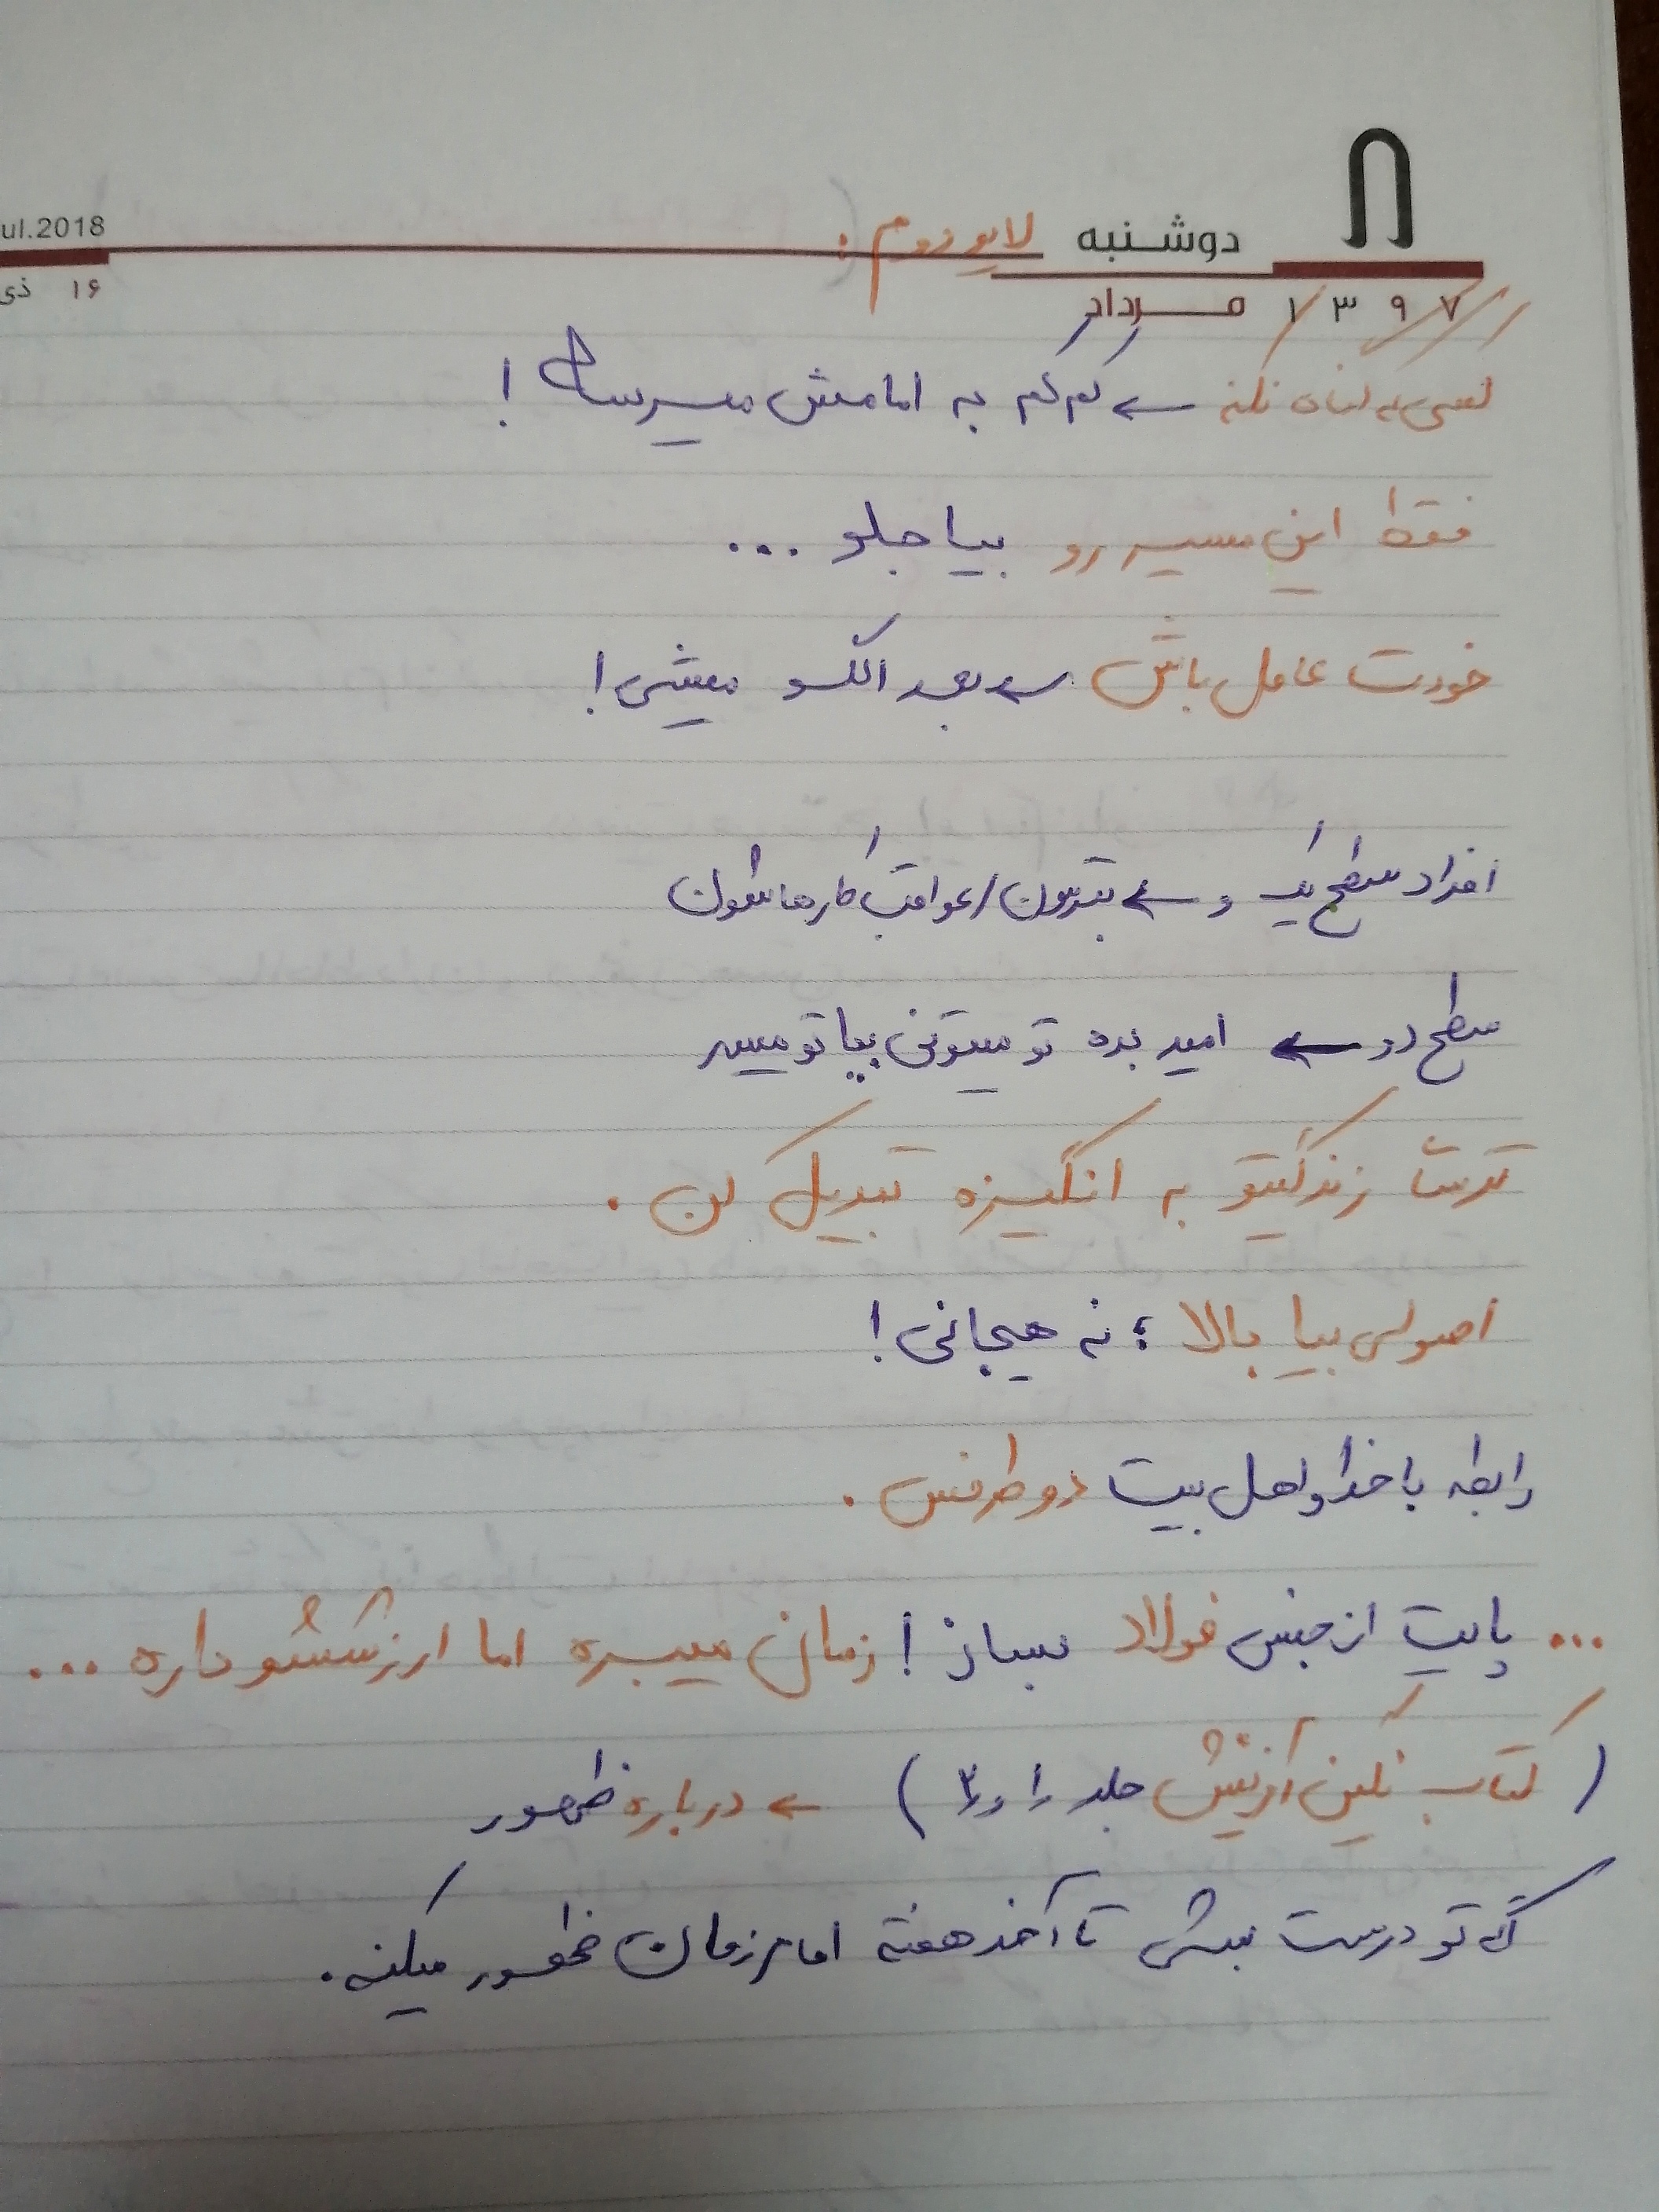 ۸
دوشنبه لایو دوم :
ul.2018
۱۳۹۷ مرداد
۱۶ ذی
کسی که گناه نکنه ← کم کم به امامش میرسه !
فقط این مسیر رو بیا جلو ...
خودت عامل باش ← بعد الگو میشی !
افراد سطح یک ← بترسون / عواقب کارهاشون
سطح دو ← امید بده تو میتونی بیا تو مسیر
ترسا زندگیتو به انگیزه تبدیل کن .
اصولی بیا بالا ؛ نه هیجانی !
رابطه با خدا و اهل بیت دو طرفس .
... پایت از جنس فولاد بساز ! زمان میبره اما ارزششو داره ...
( کتاب نگین آفرینش جلد ۱ و ۲ ) ← درباره ظهور
اگه تو درست بشی تا آخر هفته امام زمان ظهور میکنه .